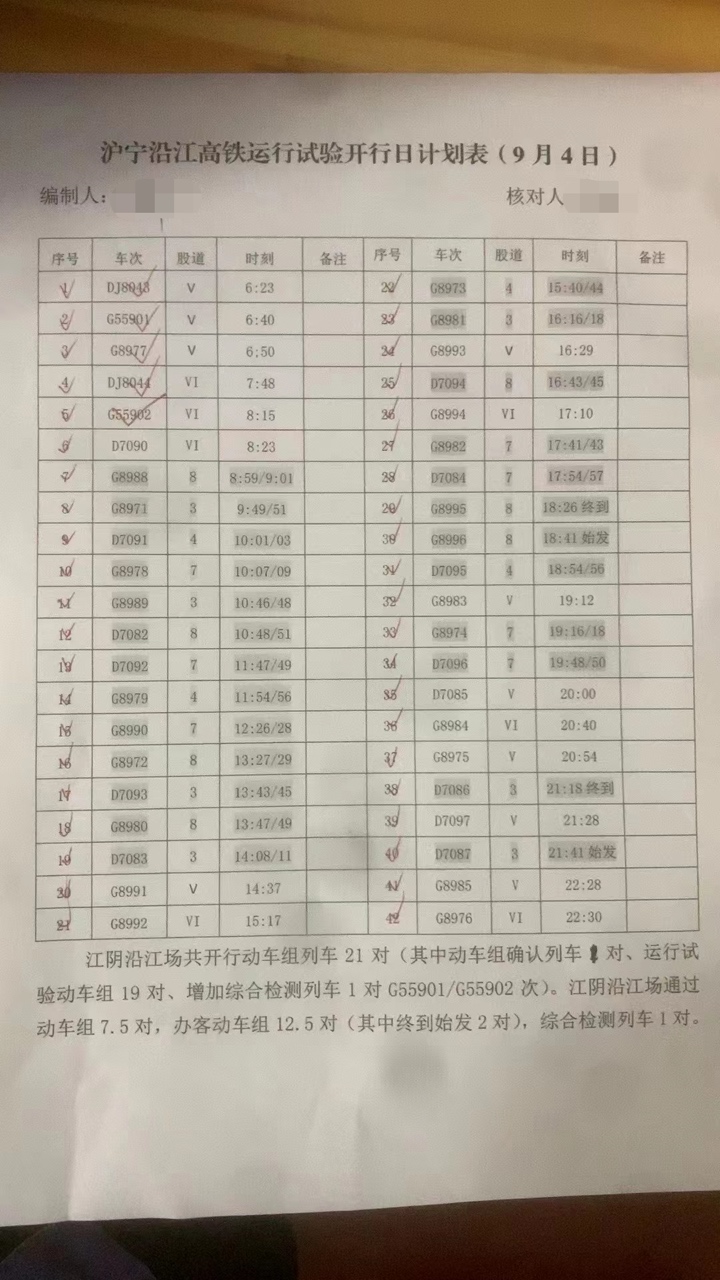 沪宁沿江高铁运行试验开行日计划表（9月4日）
编制人： 核对人
序号 车次 股道 时刻 备注 序号 车次 股道 时刻 备注
1 DJ8043 V 6:23 22 G8973 4 15:40/44
2 G55901 V 6:40 23 G8981 3 16:16/18
3 G8977 V 6;50 24 G8993 V 16:29
4 DJ8044 VI 7:48 25 D7094 8 16:43/45
5 G55902 VI 8:15 26 G8994 VI 17:10
6 D7090 VI 8:23 27 G8982 7 17:41/43
7 G8988 8 8:59/9:01 28 D7084 7 17:54/57
8 G8971 3 9:49/51 29 G8995 8 18:26 终到
9 D7091 4 10:01/03 30 G8996 8 18:41 始发
10 G8978 7 10:07/09 31 D7095 4 18:54/56
11 G8989 3 10:46/48 32 G8983 V 19:12
12 D7082 8 10:48/51 33 G8974 7 19:16/18
13 D7092 7 11:47/49 34 D7096 7 19:48/50
14 G8979 4 11:54/56 35 D7085 V 20:00
15 G8990 7 12:26/28 36 G8984 VI 20:40
16 G8972 8 13:27/29 37 G8975 V 20:54
17 D7093 3 13:43/45 38 D7086 3 21:18 终到
18 G8980 8 13:47/49 39 D7097 V 21:28
19 D7083 3 14:08/11 40 D7087 3 21:41 始发
20 G8991 V 14:37 41 G8985 V 22:28
21 G8992 VI 15:17 42 G8976 VI 22:30
江阴沿江场共开行动车组列车 21 对（其中动车组确认列车 1 对、运行试
验动车组 19 对、增加综合检测列车 1 对 G55901/G55902 次）。江阴沿江场通过
动车组 7.5 对，办客动车组 12.5 对（其中终到始发 2 对），综合检测列车 1 对。